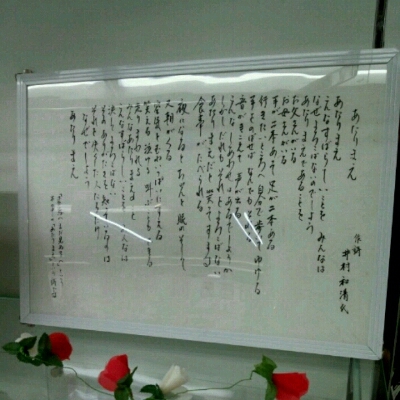 あたりまえ
作詩 井村和清氏
あたりまえ
こんなすばらしいことを みんなは
なぜよろこばないのでしょう
あたりまえであることを
お父さんがいる
お母さんがいる
手が二本あって 足が二本ある
行きたいところへ自分で歩いてゆける
手をのばせばなんでもとれる
音がきこえて声がでる
こんなしあわせはあるでしょうか
しかし だれもそれをよろこばない
あたりまえだ と笑ってすます
食事がたべられる
夜になるとちゃんと眠れ そして
又朝がくる
空気をむねいっぱいにすえる
笑える 泣ける 叫ぶこともできる
走りまわれる
みんなあたりまえのこと
こんなすばらしいことを みんなは
決してよろこばない
そのありがたさを知っているのは
それを失くした人たちだけ
なぜでしょう
あたりまえ